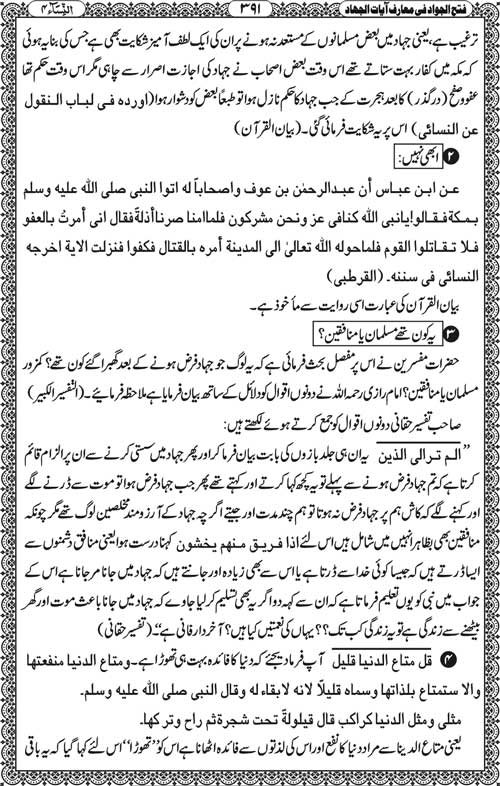 فتح الجواد فی معارف آیات الجهاد ۳۹۱ النساء ۴
ترغیب ہے، یعنی جہاد میں بعض مسلمانوں کے مستعد نہ ہونے پر ان کی ایک لطف آمیز شکایت بھی ہے جس کی بناء یہ ہوئی
کہ مکہ میں کفار بہت ستاتے تھے اس وقت بعض اصحاب نے جہاد کی اجازت اصرار سے چاہی مگر اس وقت حکم تھا
عفو و صفح (درگذر) کا بعد ہجرت کے جب جہاد کا حکم نازل ہوا تو طبعاً بعض کو دشوار ہوا (اوردہ فی لباب النقول
عن النسائی) اس پر یہ شکایت فرمائی گئی۔ (بیان القرآن)
۲ ابھی نہیں:
عن ابن عباس أن عبدالرحمٰن بن عوف واصحاباً له اتوا النبی صلی الله علیه وسلم
بمکة فقالوا یانبی الله کنا فی عز ونحن مشرکون فلما امنا صرنا أذلة فقال انی أمرتُ بالعفو
فلا تقاتلوا القوم فلما حوله الله تعالیٰ الی المدینة أمره بالقتال فکفوا فنزلت الایة اخرجه
النسائی فی سننه۔ (القرطبی)
بیان القرآن کی عبارت اسی روایت سے مأخوذ ہے۔
۳ یہ کون تھے مسلمان یا منافقین؟
حضرات مفسرین نے اس پر مفصل بحث فرمائی ہے کہ یہ لوگ جو جہاد فرض ہونے کے بعد گھبرا گئے کون تھے؟ کمزور
مسلمان یا منافقین؟ امام رازی رحمہ اللہ نے دونوں اقوال کو دلائل کے ساتھ بیان فرمایا ہے ملاحظہ فرمائیے۔ (التفسیر الکبیر)
صاحب تفسیر حقانی دونوں اقوال کو جمع کرتے ہوئے لکھتے ہیں:
”الم تر الی الذین یہ ان ہی جلد بازوں کی بابت بیان فرما کر اور پھر جہاد میں سستی کرنے سے ان پر الزام قائم
کرتا ہے کہ تم جہاد فرض ہونے سے پہلے تو یہ کچھ کہا کرتے اور کہتے تھے پھر جب جہاد فرض ہوا تو موت سے ڈرنے لگے
اور کہنے لگے کہ کاش ہم پر جہاد فرض نہ ہوتا تو ہم چند مدت اور جیتے اگرچہ جہاد کے آرزومند مخلصین لوگ تھے مگر چونکہ
منافقین بھی بظاہر انہیں میں شامل ہیں اس لئے اذا فریق منهم یخشون کہنا درست ہوا یعنی منافق دشمنوں سے
ایسا ڈرتے ہیں کہ جیسا کوئی خدا سے ڈرتا ہے یا اس سے بھی زیادہ اور جانتے ہیں کہ جہاد میں جانا مر جانا ہے اس کے
جواب میں نبی کو یوں تعلیم فرماتا ہے کہ ان سے کہہ دو اگر یہ بھی تسلیم کر لیا جاوے کہ جہاد میں جانا باعث موت اور گھر
بیٹھنے سے زندگی ہے تو یہ زندگی کب تک؟؟ یہاں کی نعمتیں کیا ہیں؟ آخر دار فانی ہے“ (تفسیر حقانی)
۴ قل متاع الدنیا قلیل آپ فرما دیجئے کہ دنیا کا فائدہ بہت ہی تھوڑا ہے۔ ومتاع الدنیا منفعتها
والا ستمتاع بلذاتها وسماه قلیلاً لانه لابقاء له وقال النبی صلی الله علیه وسلم۔
مثلی ومثل الدنیا کراکب قال قیلولة تحت شجرة ثم راح وترکها۔
یعنی متاع الدنیا سے مراد دنیا کا نفع اور اس کی لذتوں سے فائدہ اٹھانا ہے اس کو ”تھوڑا“ اس لئے کہا گیا کہ یہ باقی